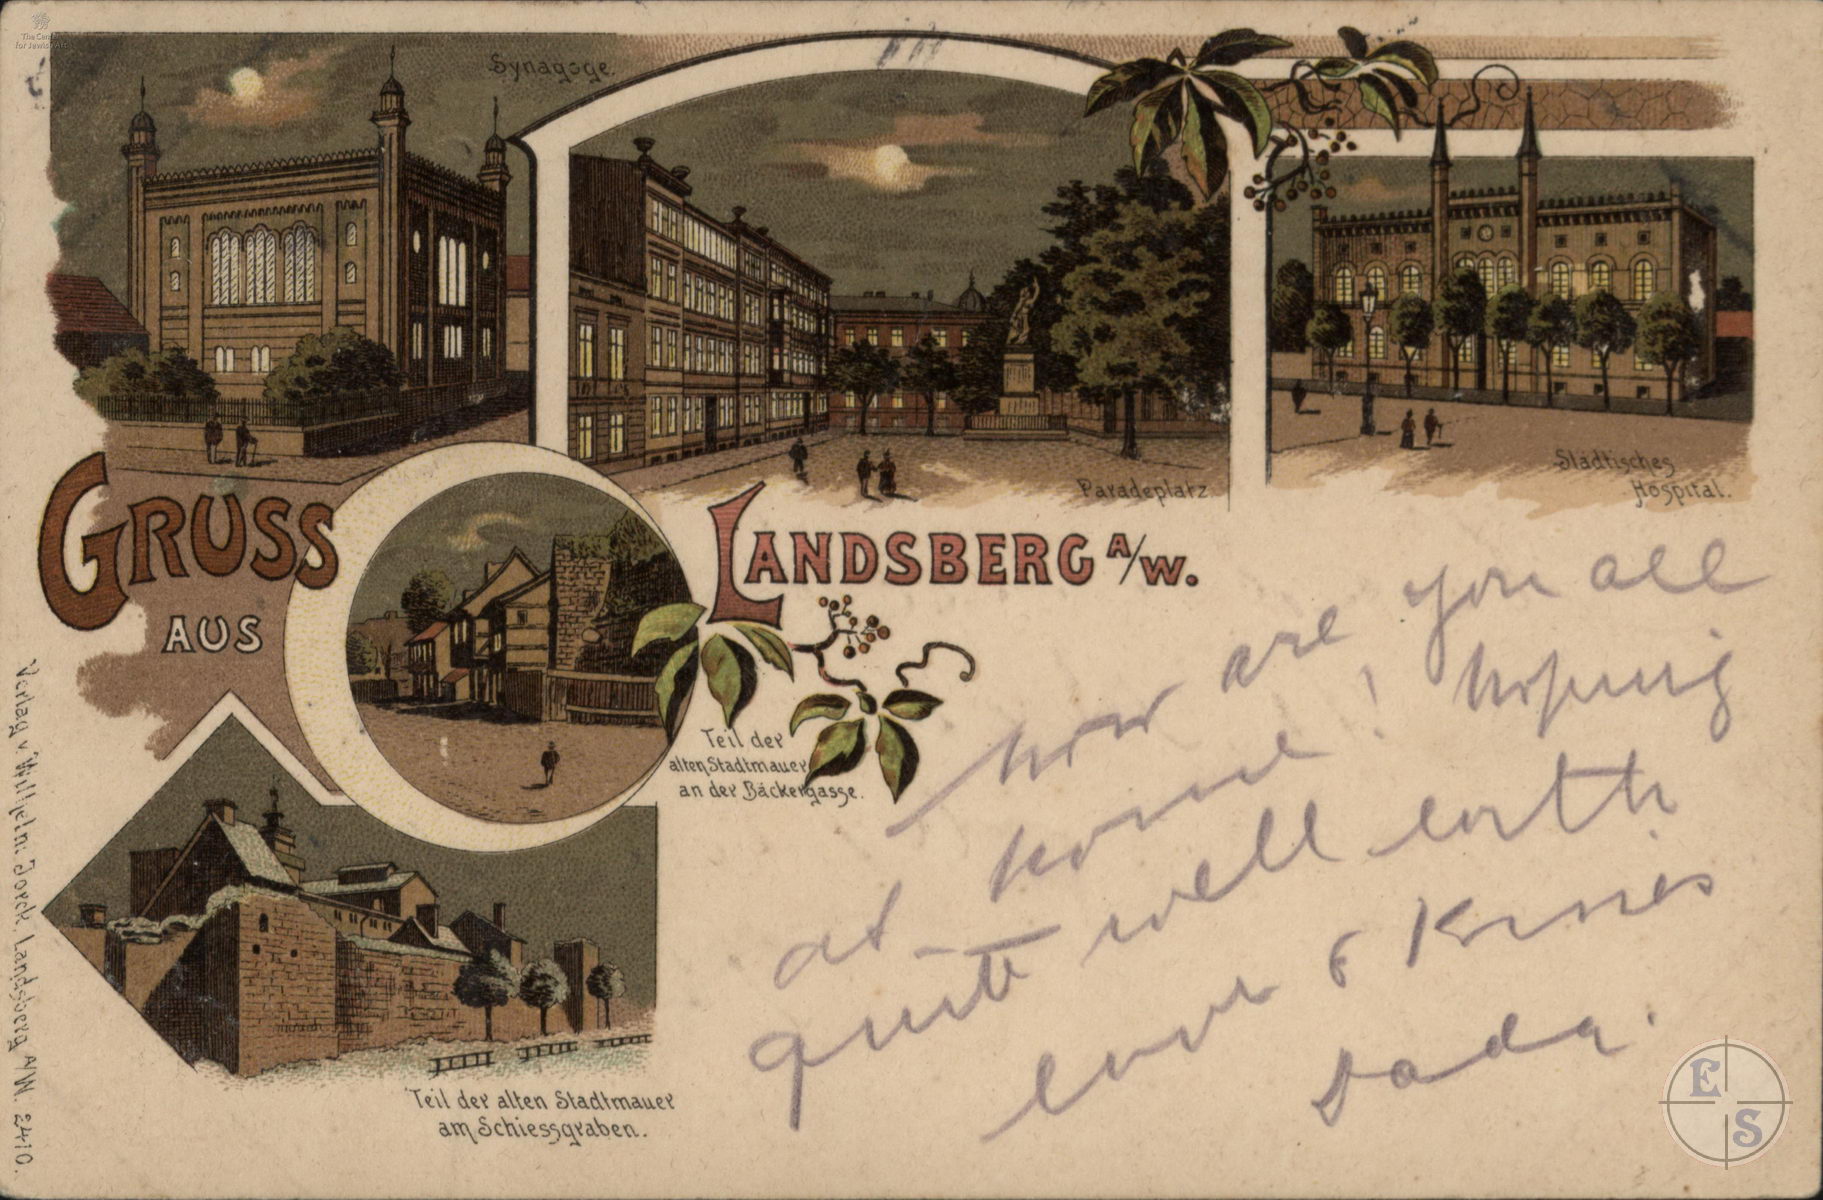 The Center
for Jewish Art
Synagoge.
Paradeplatz
Städtisches
Hospital.
GRUSS
AUS
LANDSBERG A/W.
Teil der
alten Stadtmauer
an der Bäckergasse.
Teil der alten Stadtmauer
am Schiessgraben.
Verlag v. Wilhelm Jorck, Landsberg A/W. 2410.
how are you all
at home! hoping
quite well with
love & Kisses
Dada.
E
S